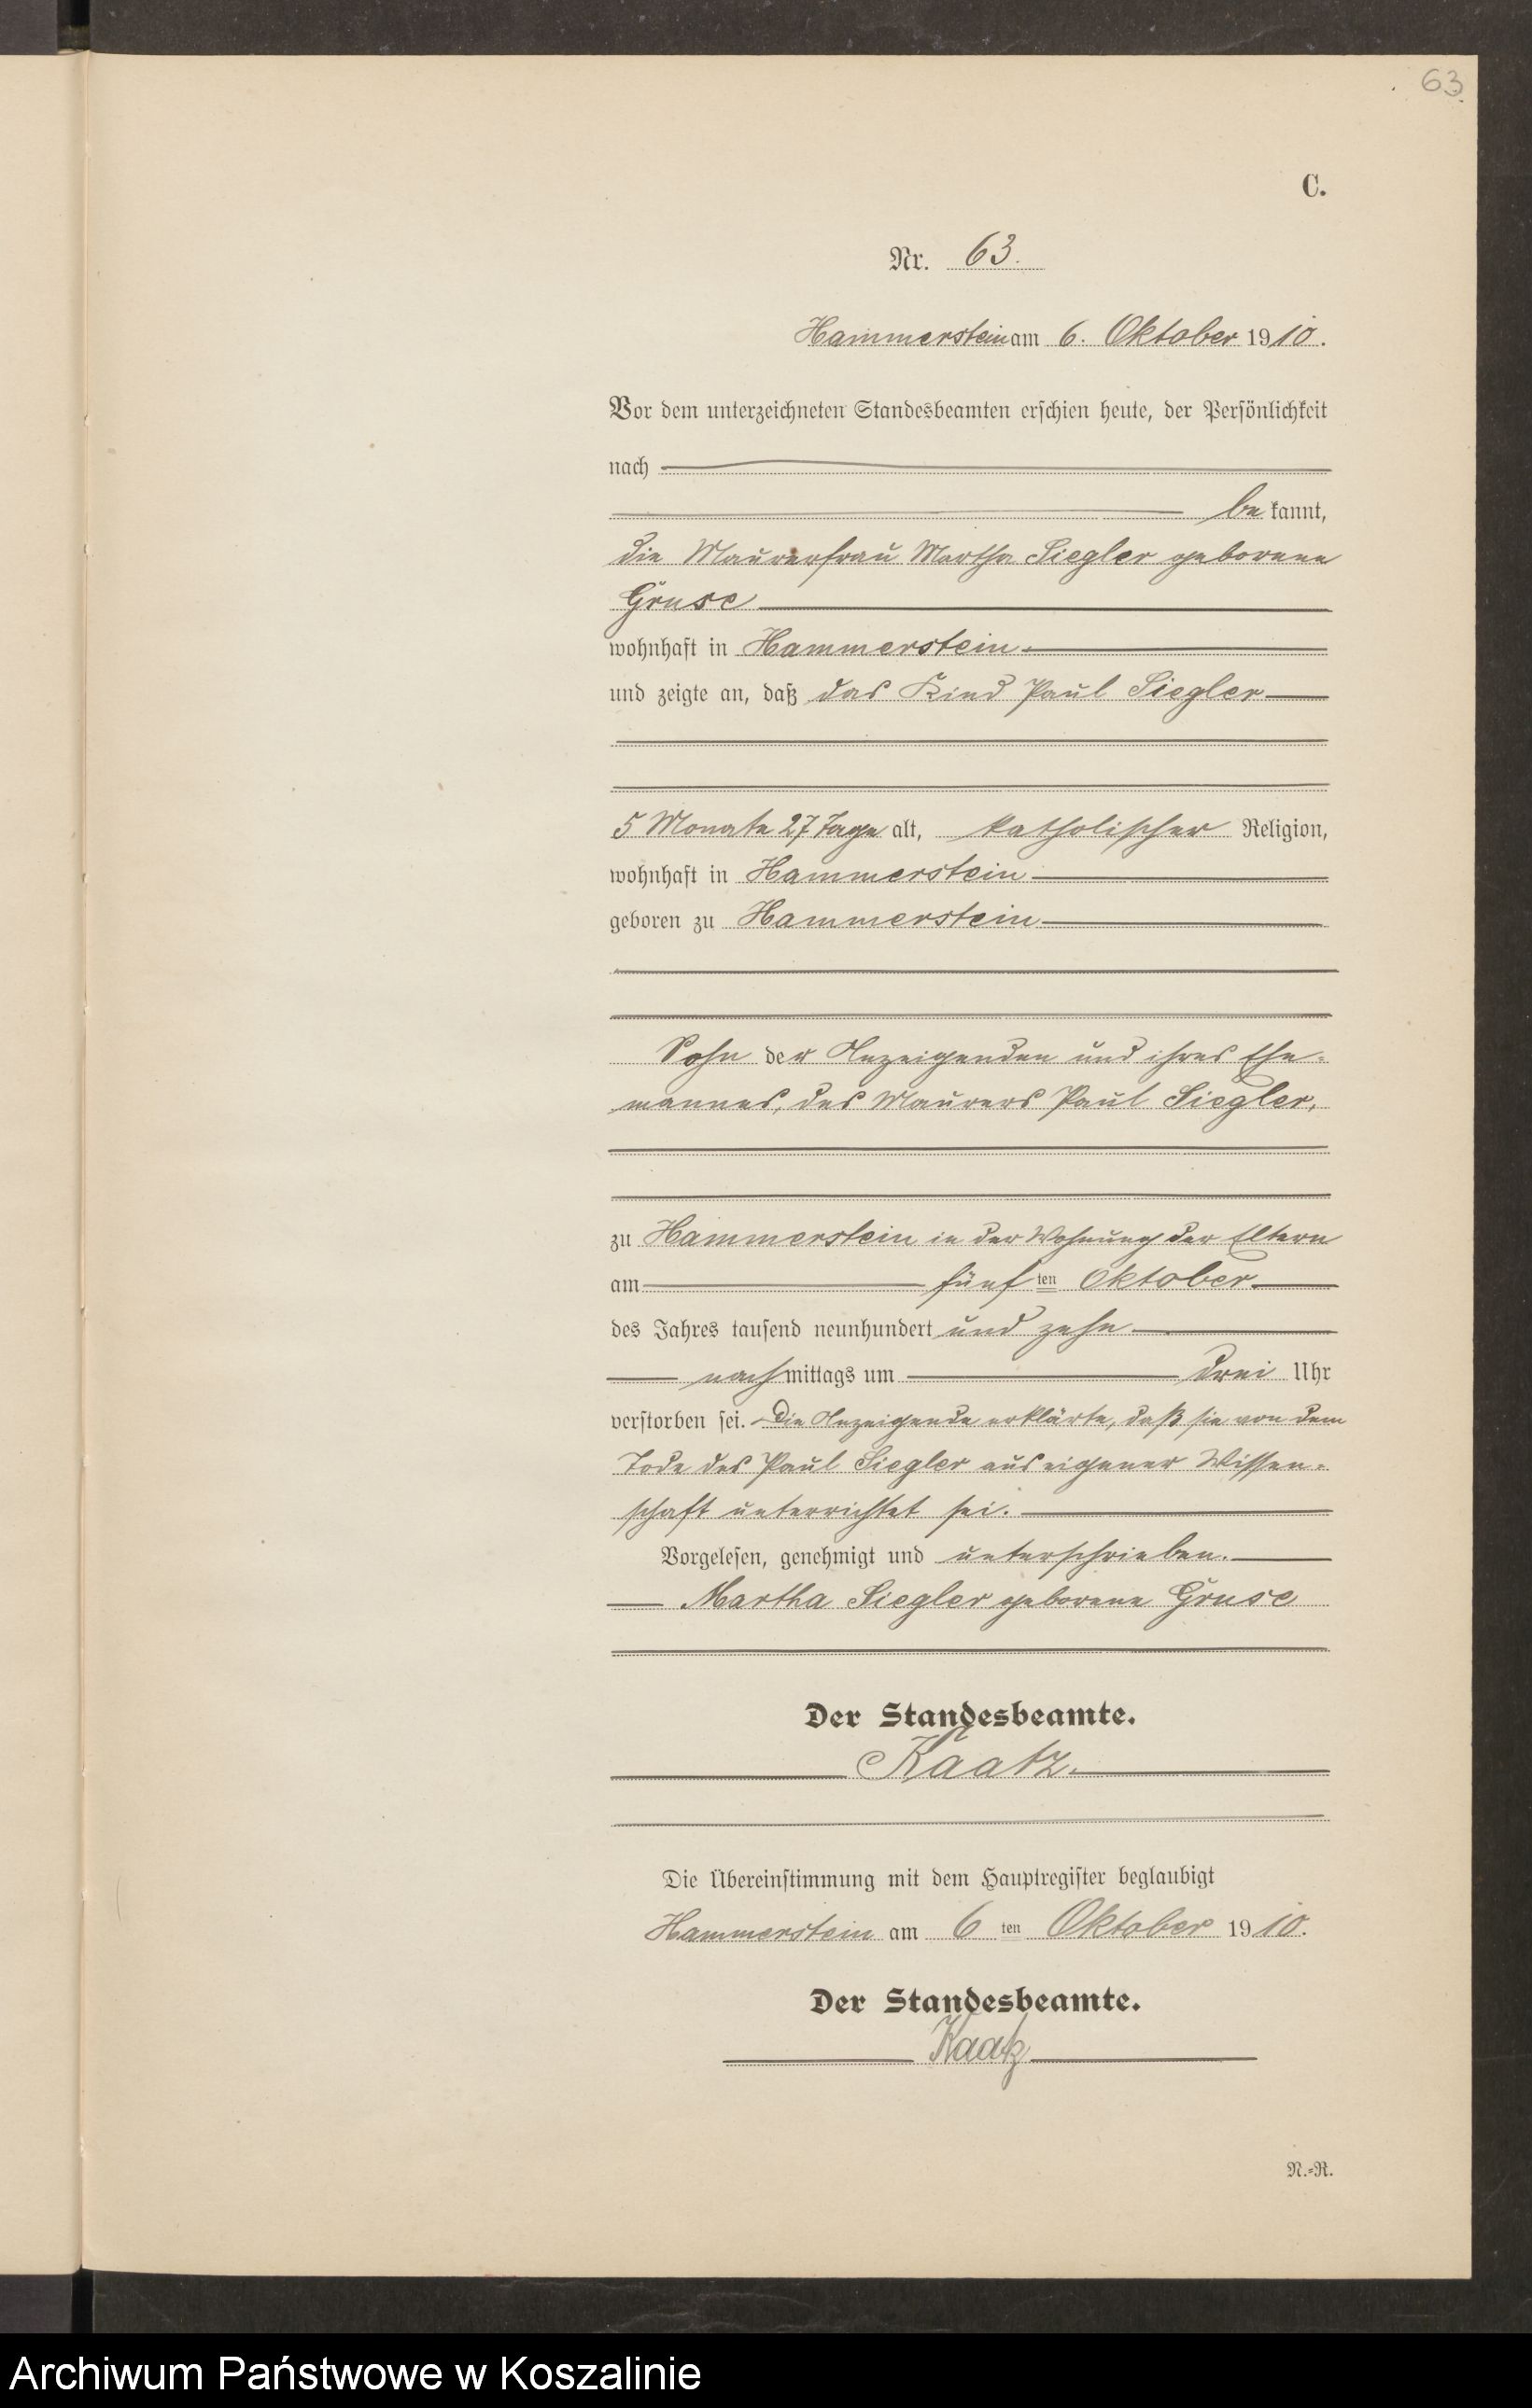 63.
C.
Nr. 63.
Hammerstein am 6. Oktober 1910.
Vor dem unterzeichneten Standesbeamten erschien heute, der Persönlichkeit
nach
bekannt,
die Maurerfrau Martha Siegler geborene
Gruse
wohnhaft in Hammerstein.
und zeigte an, daß das Kind Paul Siegler
5 Monate 27 Tage alt, katholischer Religion,
wohnhaft in Hammerstein
geboren zu Hammerstein
Sohn der Anzeigenden und ihres Ehe-
mannes, des Maurers Paul Siegler,
zu Hammerstein in der Wohnung der Eltern
am fünf ten Oktober
des Jahres tausend neunhundert und zehn
nachmittags um drei Uhr
verstorben sei. Die Anzeigende erklärte, daß sie von dem
Tode des Paul Siegler aus eigener Wissen-
schaft unterrichtet sei.
Vorgelesen, genehmigt und unterschrieben.
Martha Siegler geborene Gruse
Der Standesbeamte.
Kaatz.
Die Übereinstimmung mit dem Hauptregister beglaubigt
Hammerstein am 6 ten Oktober 1910.
Der Standesbeamte.
Kaatz
N.-R.
Archiwum Państwowe w Koszalinie